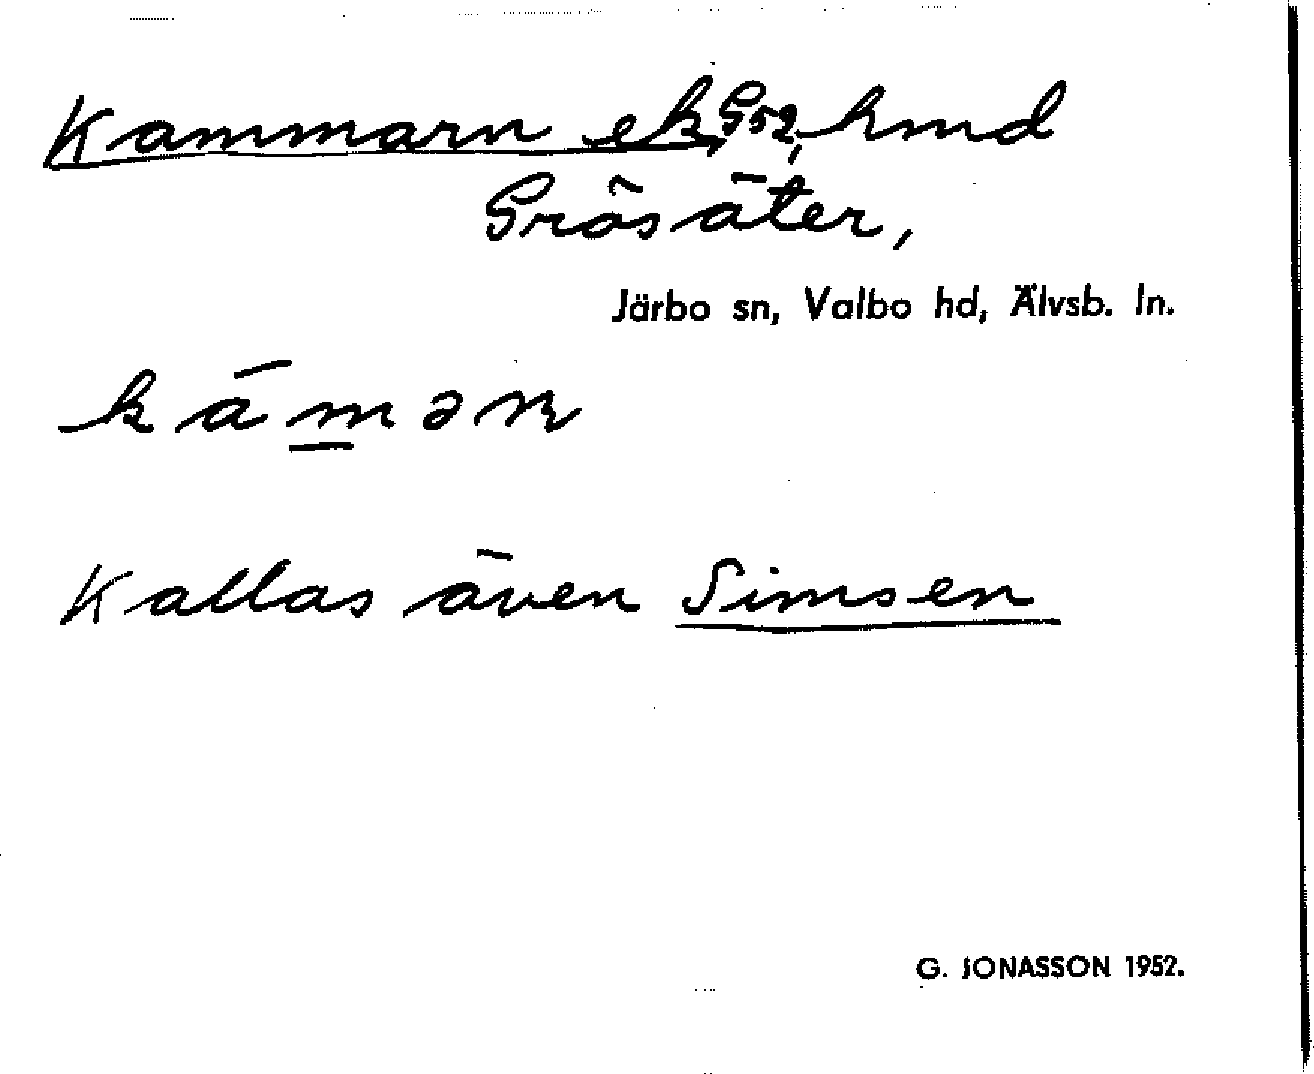 Kammarn ek, G52, hmd
Gräsäter,
Järbo sn, Valbo hd, Älvsb. ln.
káməṉ
Kallas även Simsen
G. JONASSON 1952.